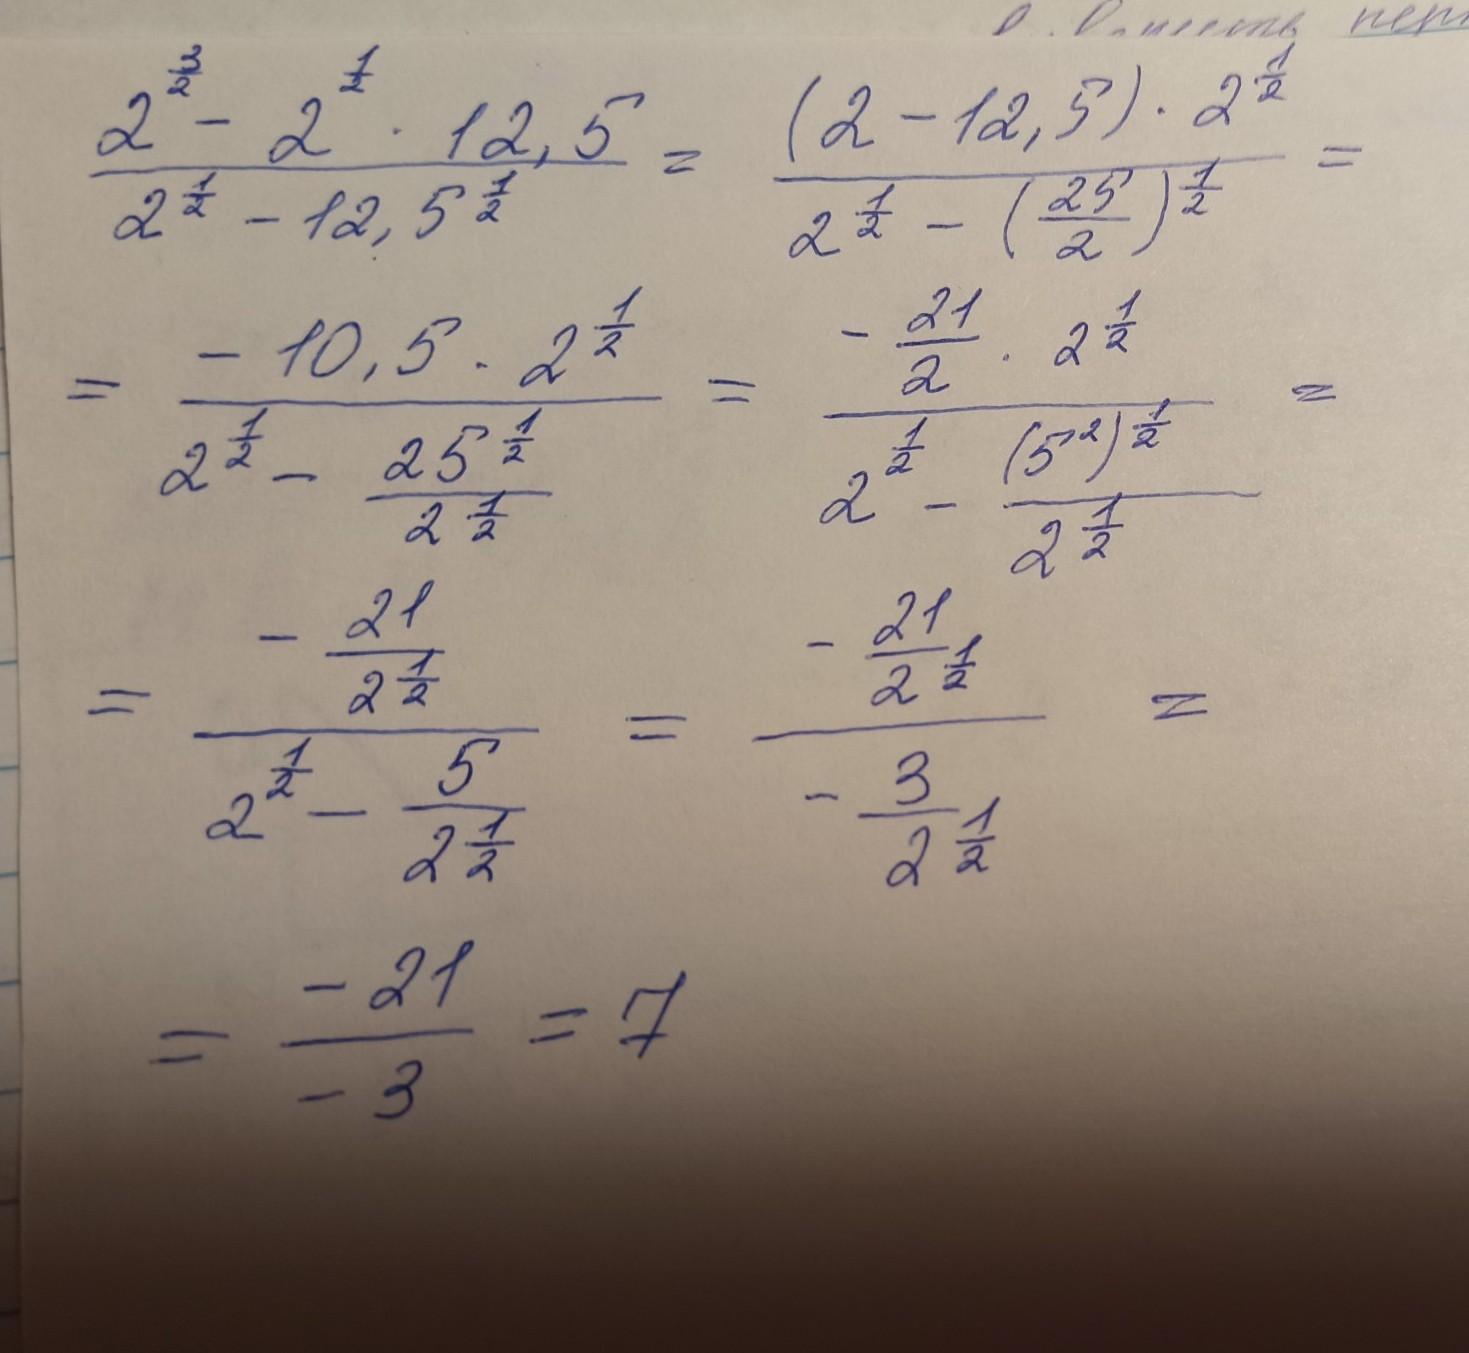 (2^(3/2) - 2^(1/2) · 12,5) / (2^(1/2) - 12,5^(1/2)) = ((2 - 12,5) · 2^(1/2)) / (2^(1/2) - (25/2)^(1/2)) =
= (-10,5 · 2^(1/2)) / (2^(1/2) - 25^(1/2)/2^(1/2)) = (-21/2 · 2^(1/2)) / (2^(1/2) - (5^2)^(1/2)/2^(1/2)) =
= (-21/2^(1/2)) / (2^(1/2) - 5/2^(1/2)) = (-21/2^(1/2)) / (-3/2^(1/2)) =
= -21 / -3 = 7